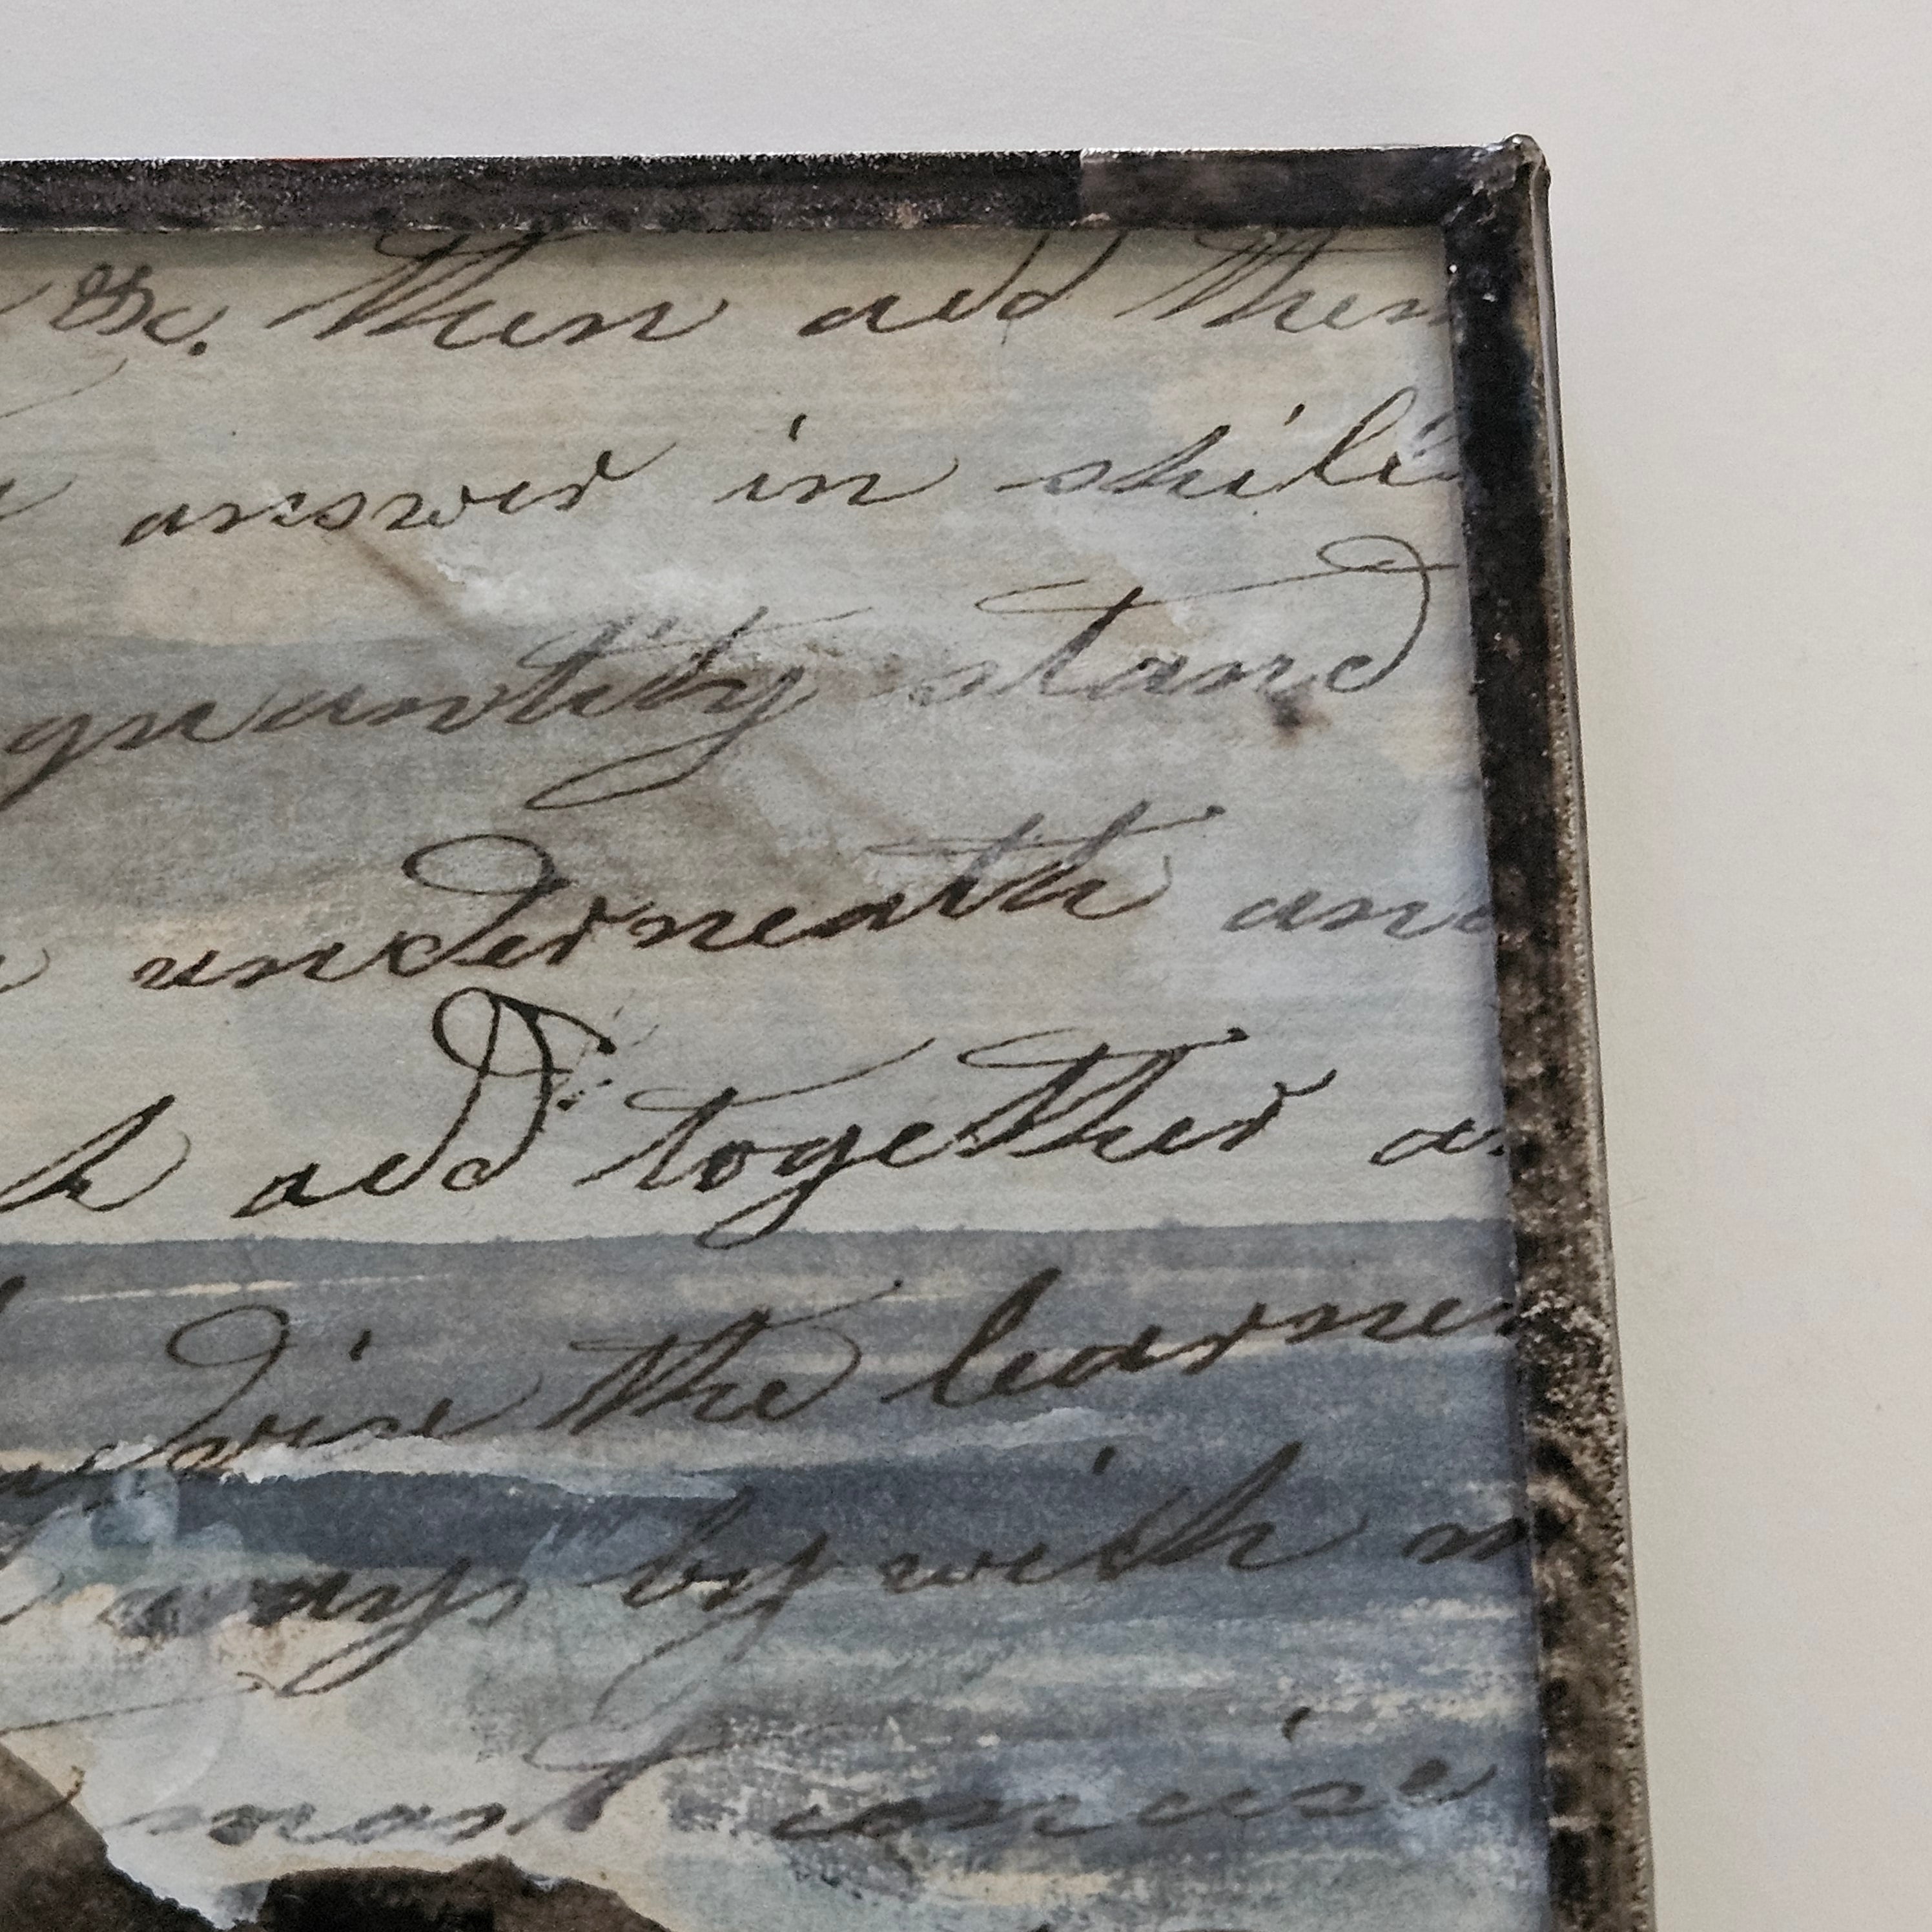 &c. then add them
answer in shili
quantity stand
underneath and
h add together a
wise the learner
ways by with m
most concise